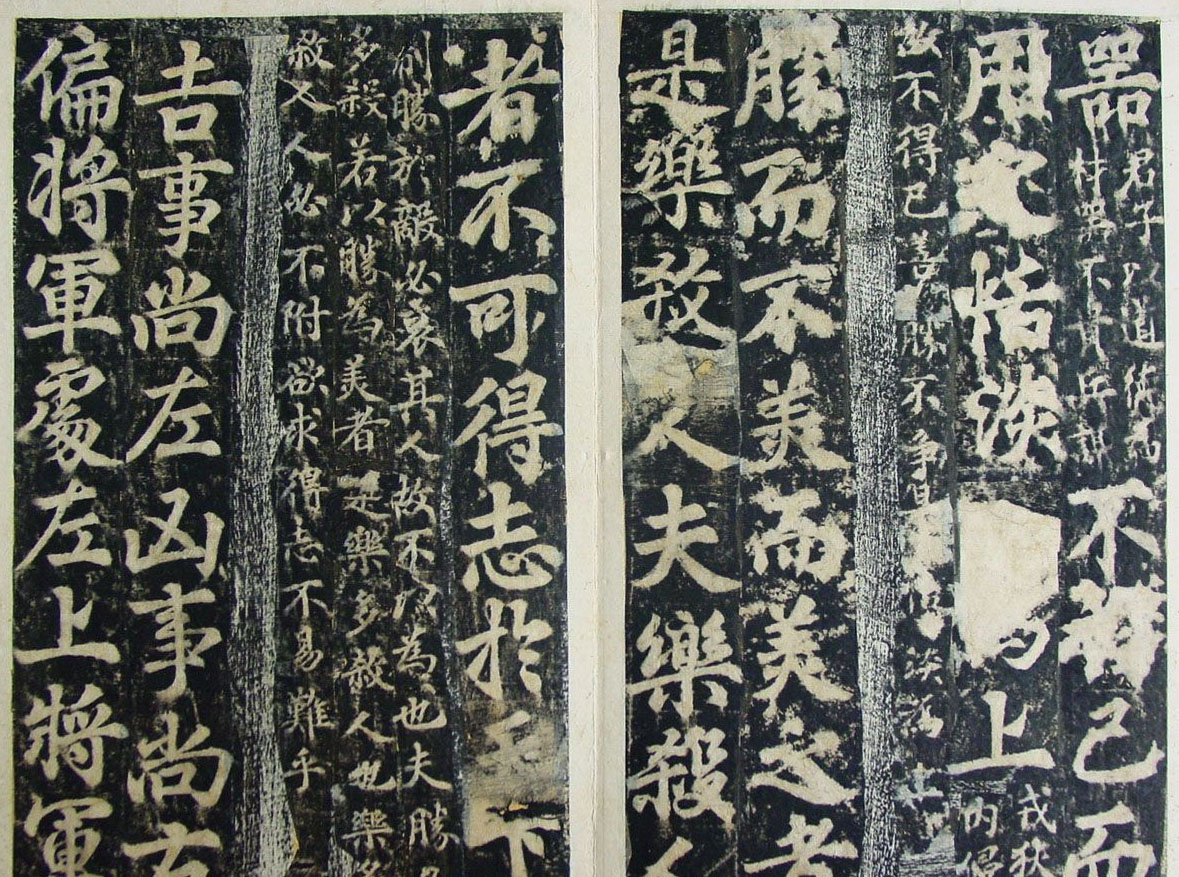 器君子以道德為
材器不
不得已而
用之恬淡
為上戎狄
內侵
故不得已善勝不爭
勝而不美而美之者
是樂殺人夫樂殺人
者不可得志於天下
制勝於敵必哀其人故不以為也夫勝
多殺若以勝為美者是樂多殺人也樂多
殺人人必不附欲求得志不易難乎
吉事尚左凶事尚右
偏將軍處左上將軍